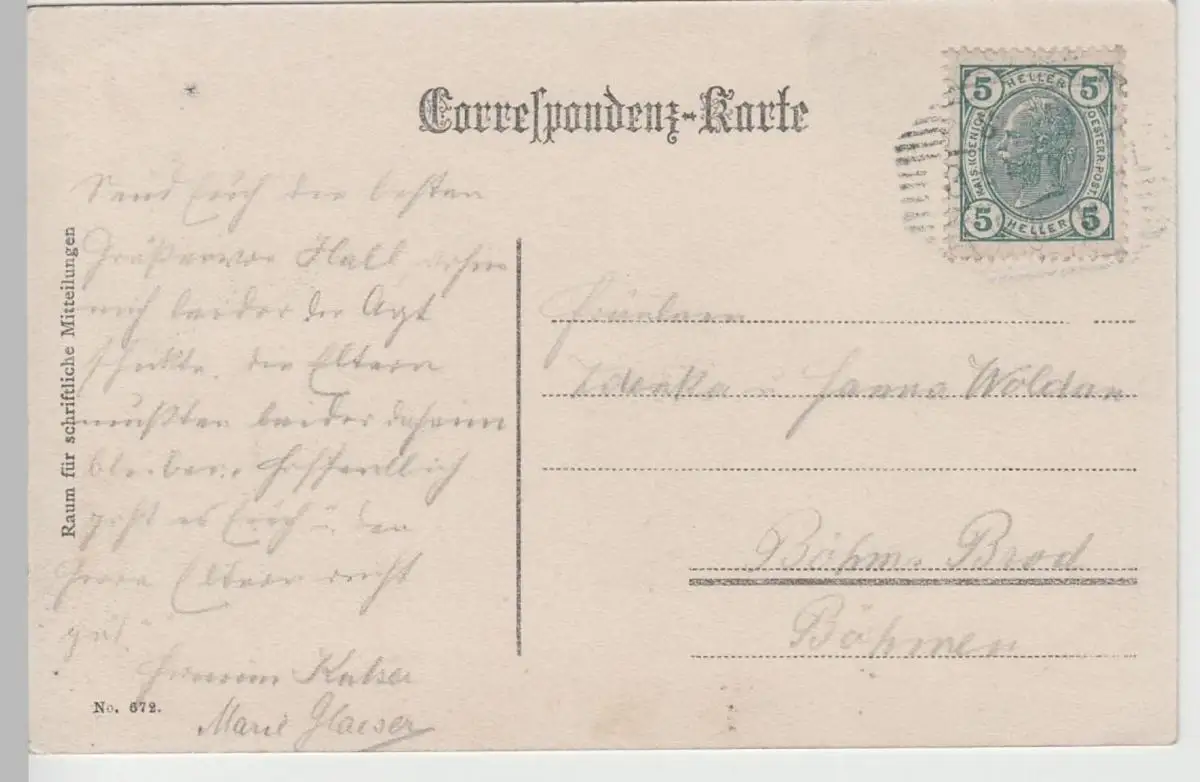 Correspondenz-Karte
5 HELLER 5
KAIS. KOENIGL. OESTERR. POST.
5 HELLER 5
Raum für schriftliche Mitteilungen
Send Euch die besten
Grüße von Hall, wohin
mich leider der Agt
schickte. die Eltern
mußten beider daheim
bleiben. Hoffentlich
geht es Euch u. den
Eltern recht
gut.
Katser
Marie Glaeser
No. 672.
Fräulein
Zdenka u. Hanna Woldan
Böhm. Brod
Böhmen